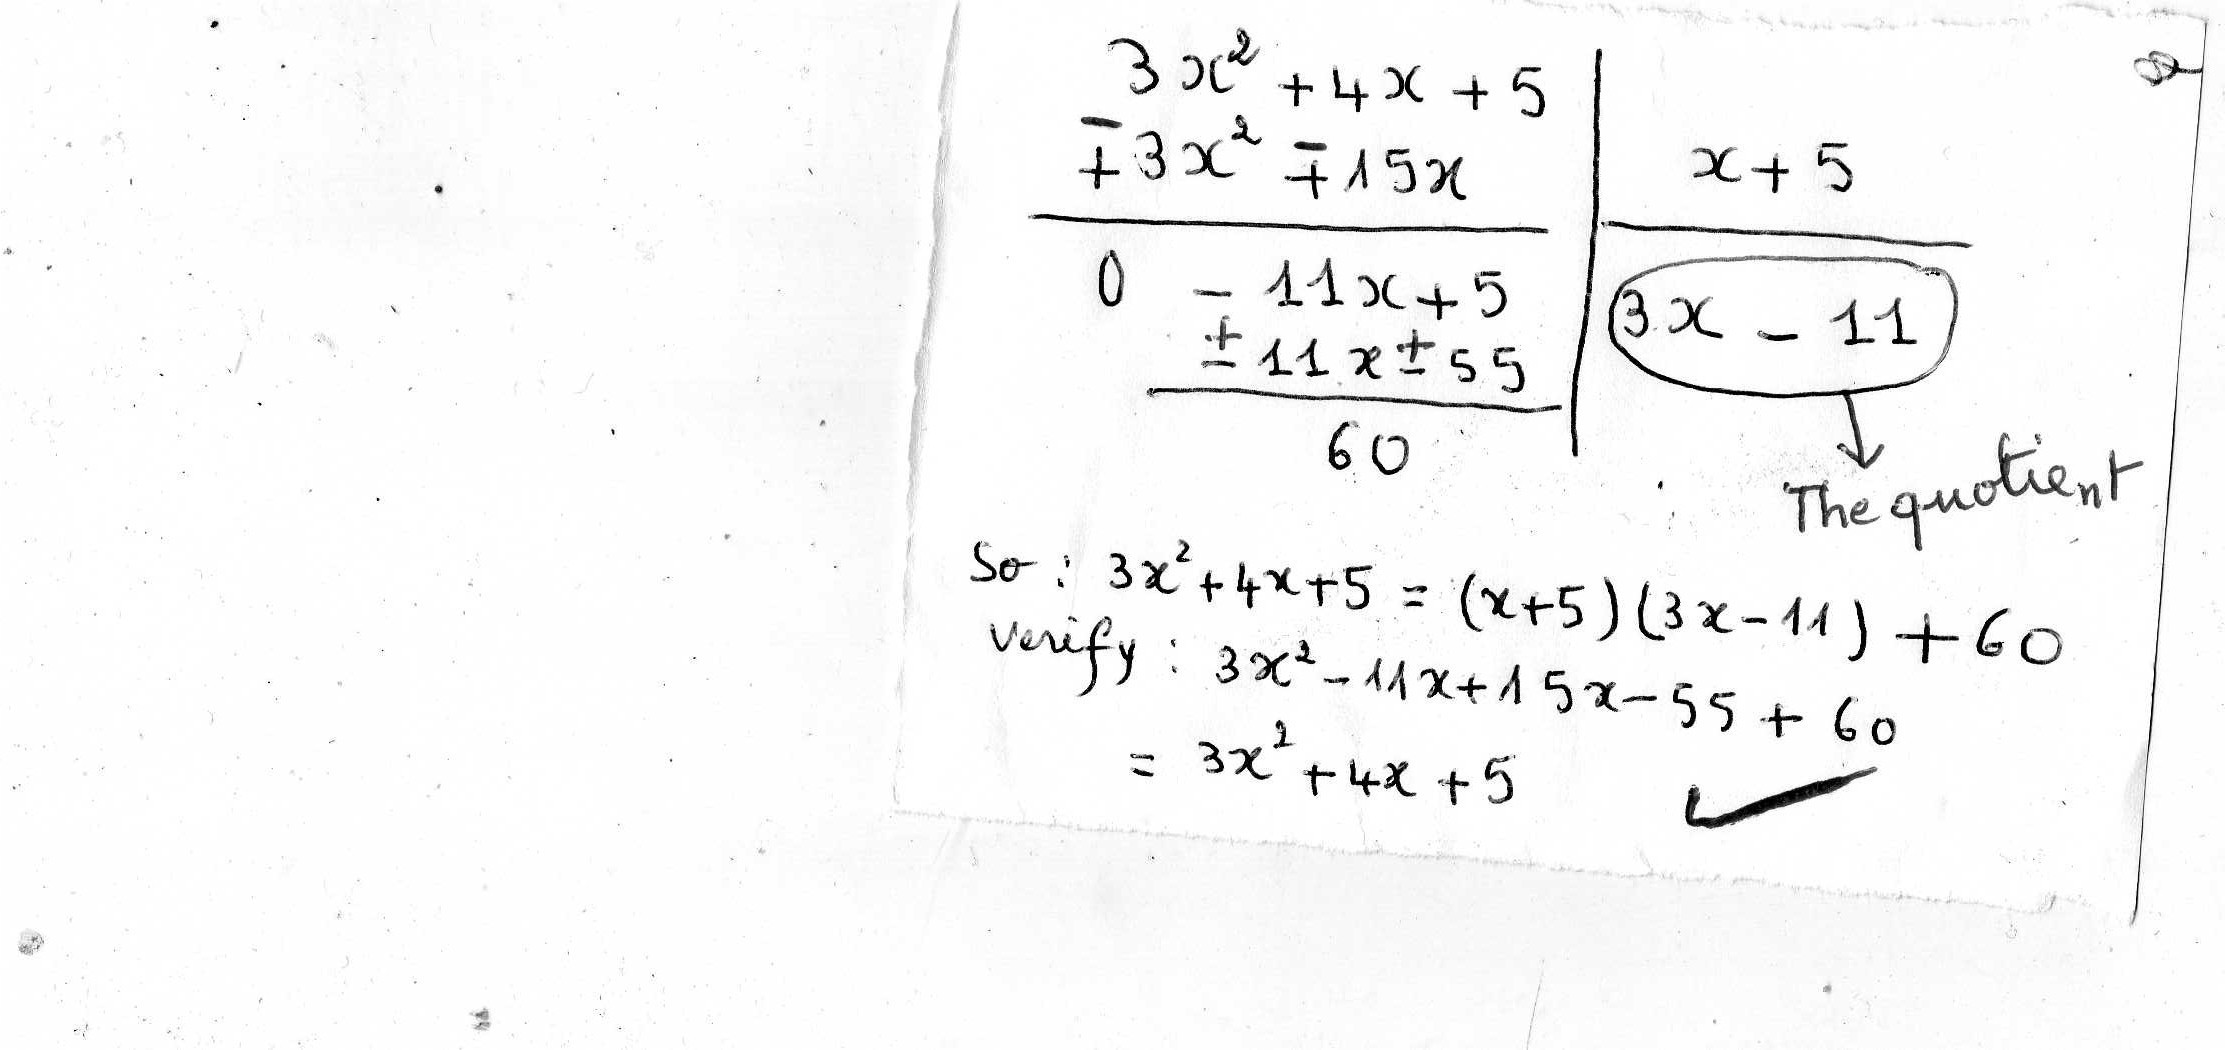 3x² + 4x + 5
∓3x² ∓ 15x
x + 5
0 - 11x + 5
± 11x ± 55
3x - 11
60
The quotient
So : 3x² + 4x + 5 = (x+5)(3x-11) + 60
Verify : 3x² - 11x + 15x - 55 + 60
= 3x² + 4x + 5 ✓